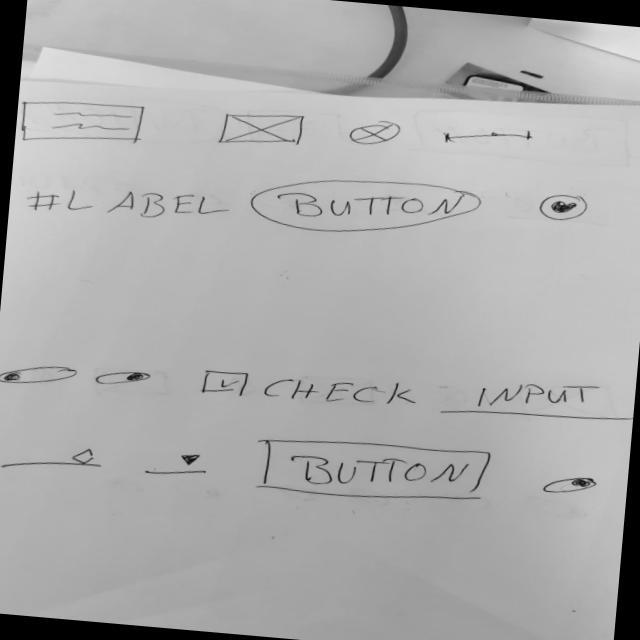 #LABEL BUTTON
CHECK INPUT
BUTTON